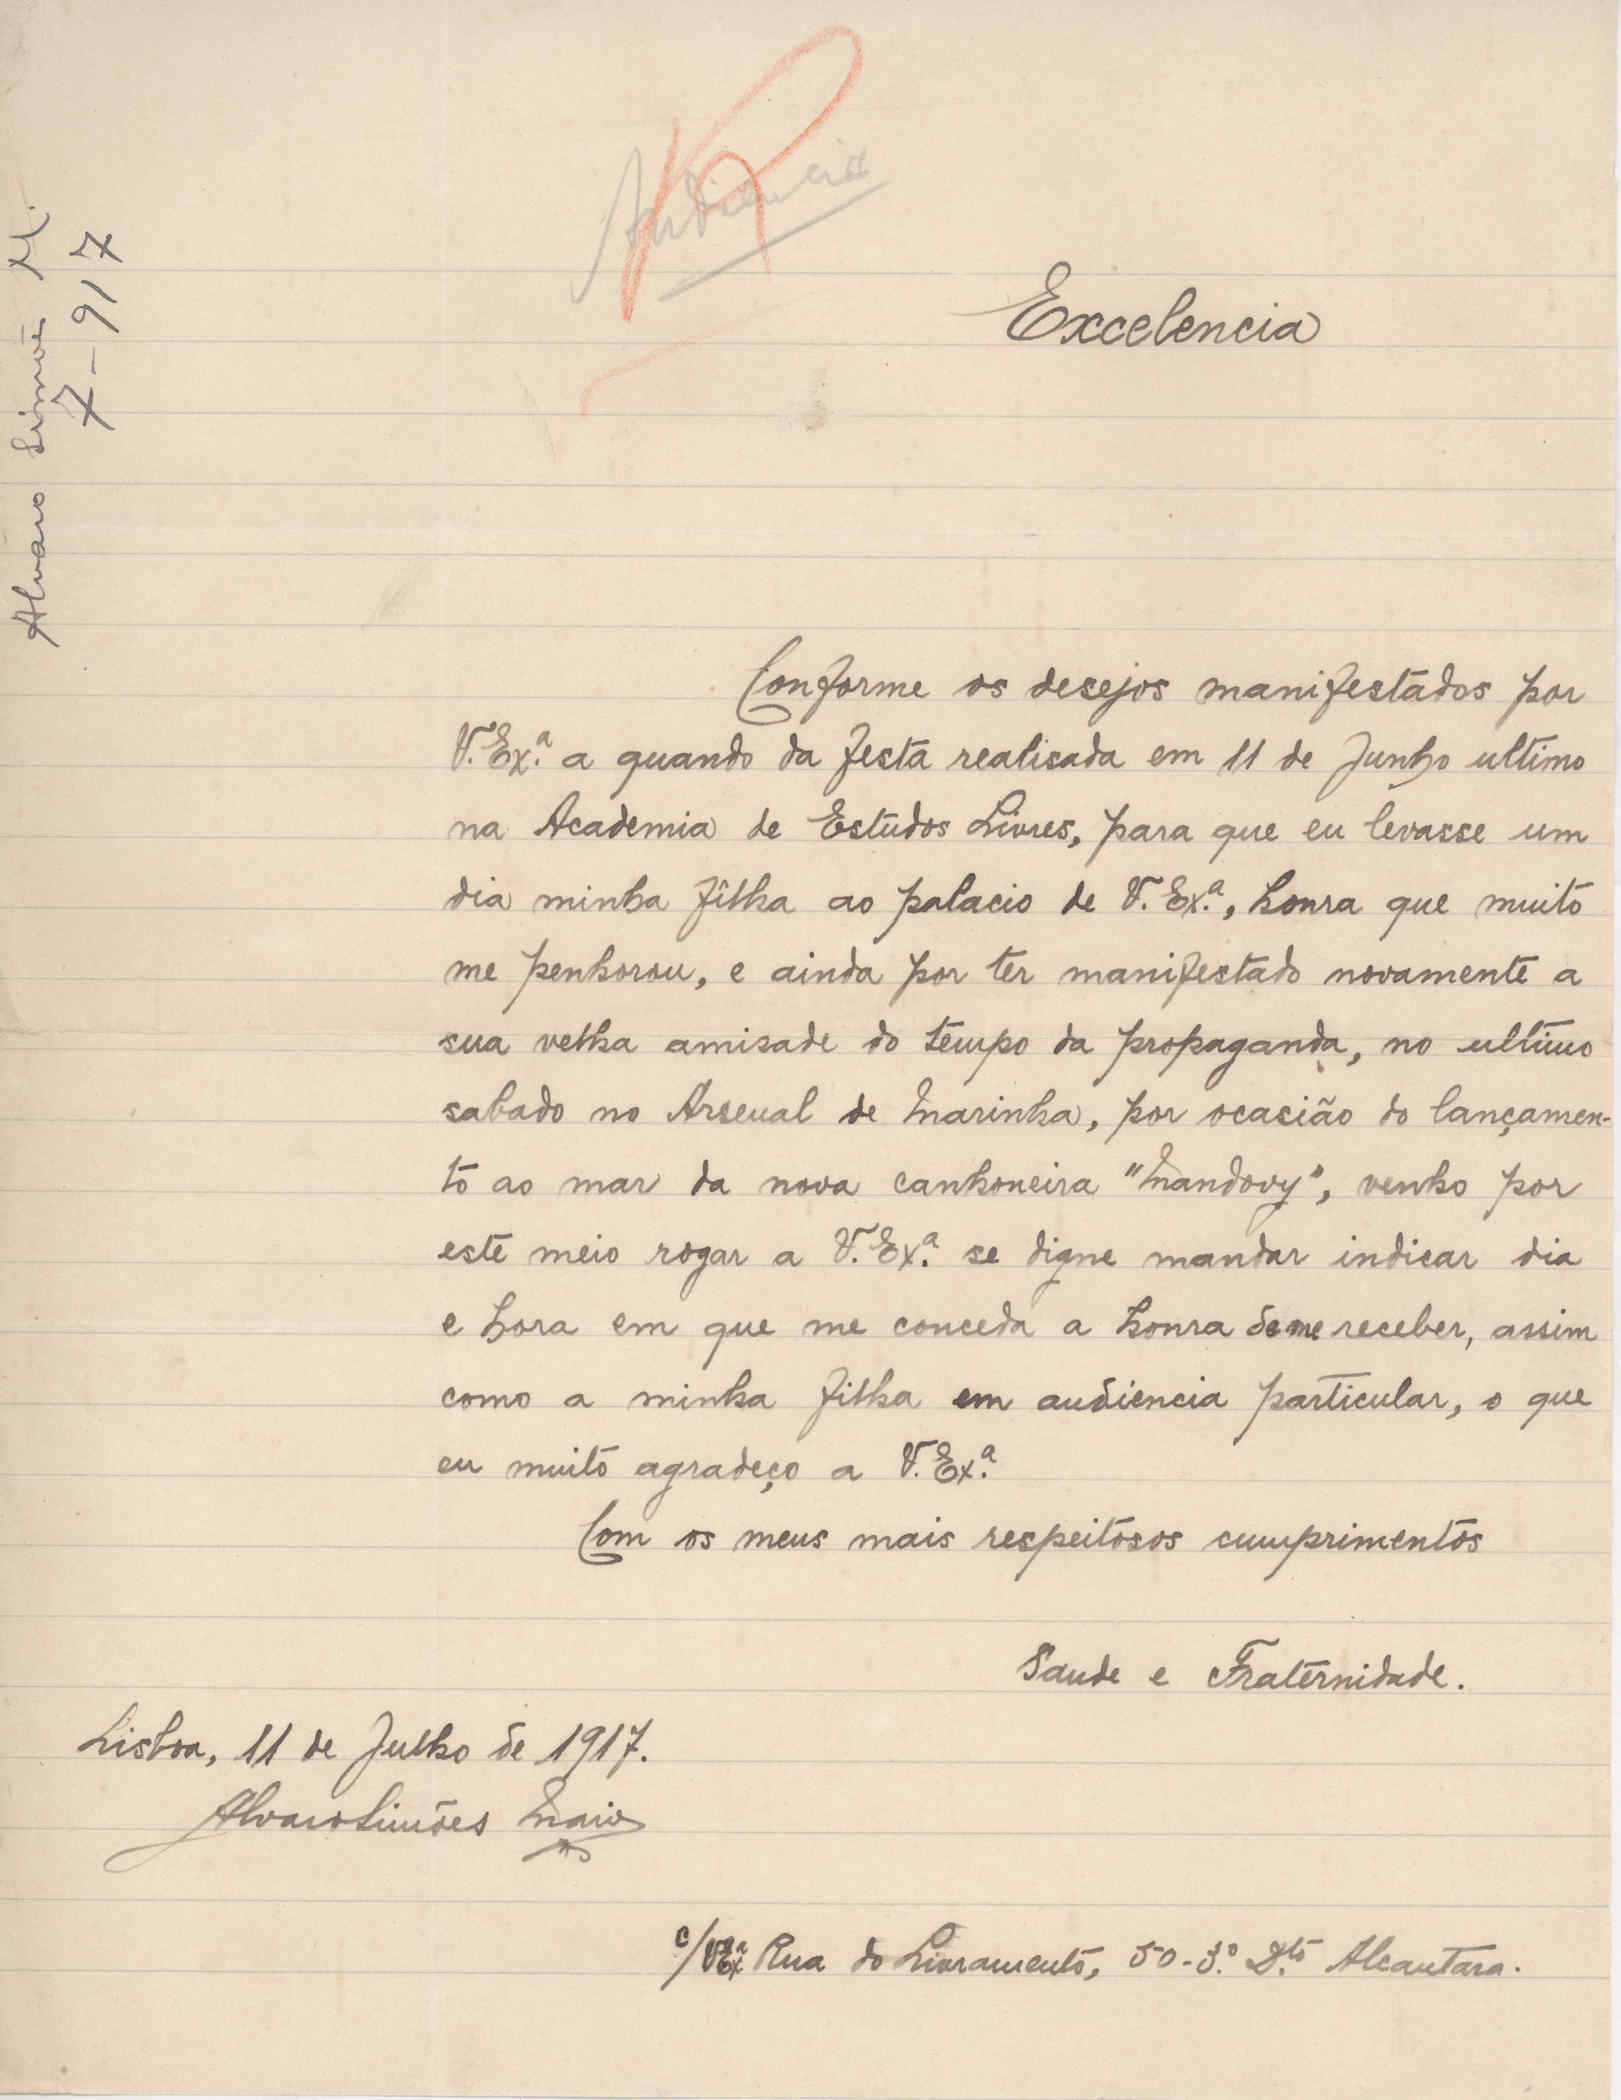 Audiencia
R
Alvaro Simões M.
7-917
Excelencia
Conforme os desejos manifestados por
V. Ex.ª a quando da festa realisada em 11 de Junho ultimo
na Academia de Estudos Livres, para que eu levasse um
dia minha filha ao palacio de V. Ex.ª, honra que muito
me penhorou, e ainda por ter manifestado novamente a
sua velha amisade do tempo da propaganda, no ultimo
sabado no Arsenal de Marinha, por ocasião do lançamen-
to ao mar da nova canhoneira "Mandovy", venho por
este meio rogar a V. Ex.ª se digne mandar indicar dia
e hora em que me conceda a honra de me receber, assim
como a minha filha em audiencia particular, o que
eu muito agradeço a V. Ex.ª
Com os meus mais respeitosos cumprimentos
Saude e Fraternidade.
Lisboa, 11 de Julho de 1917.
Alvaro Simões Maio
c/ V Exª Rua do Livramento, 50-3.º D.to Alcantara.